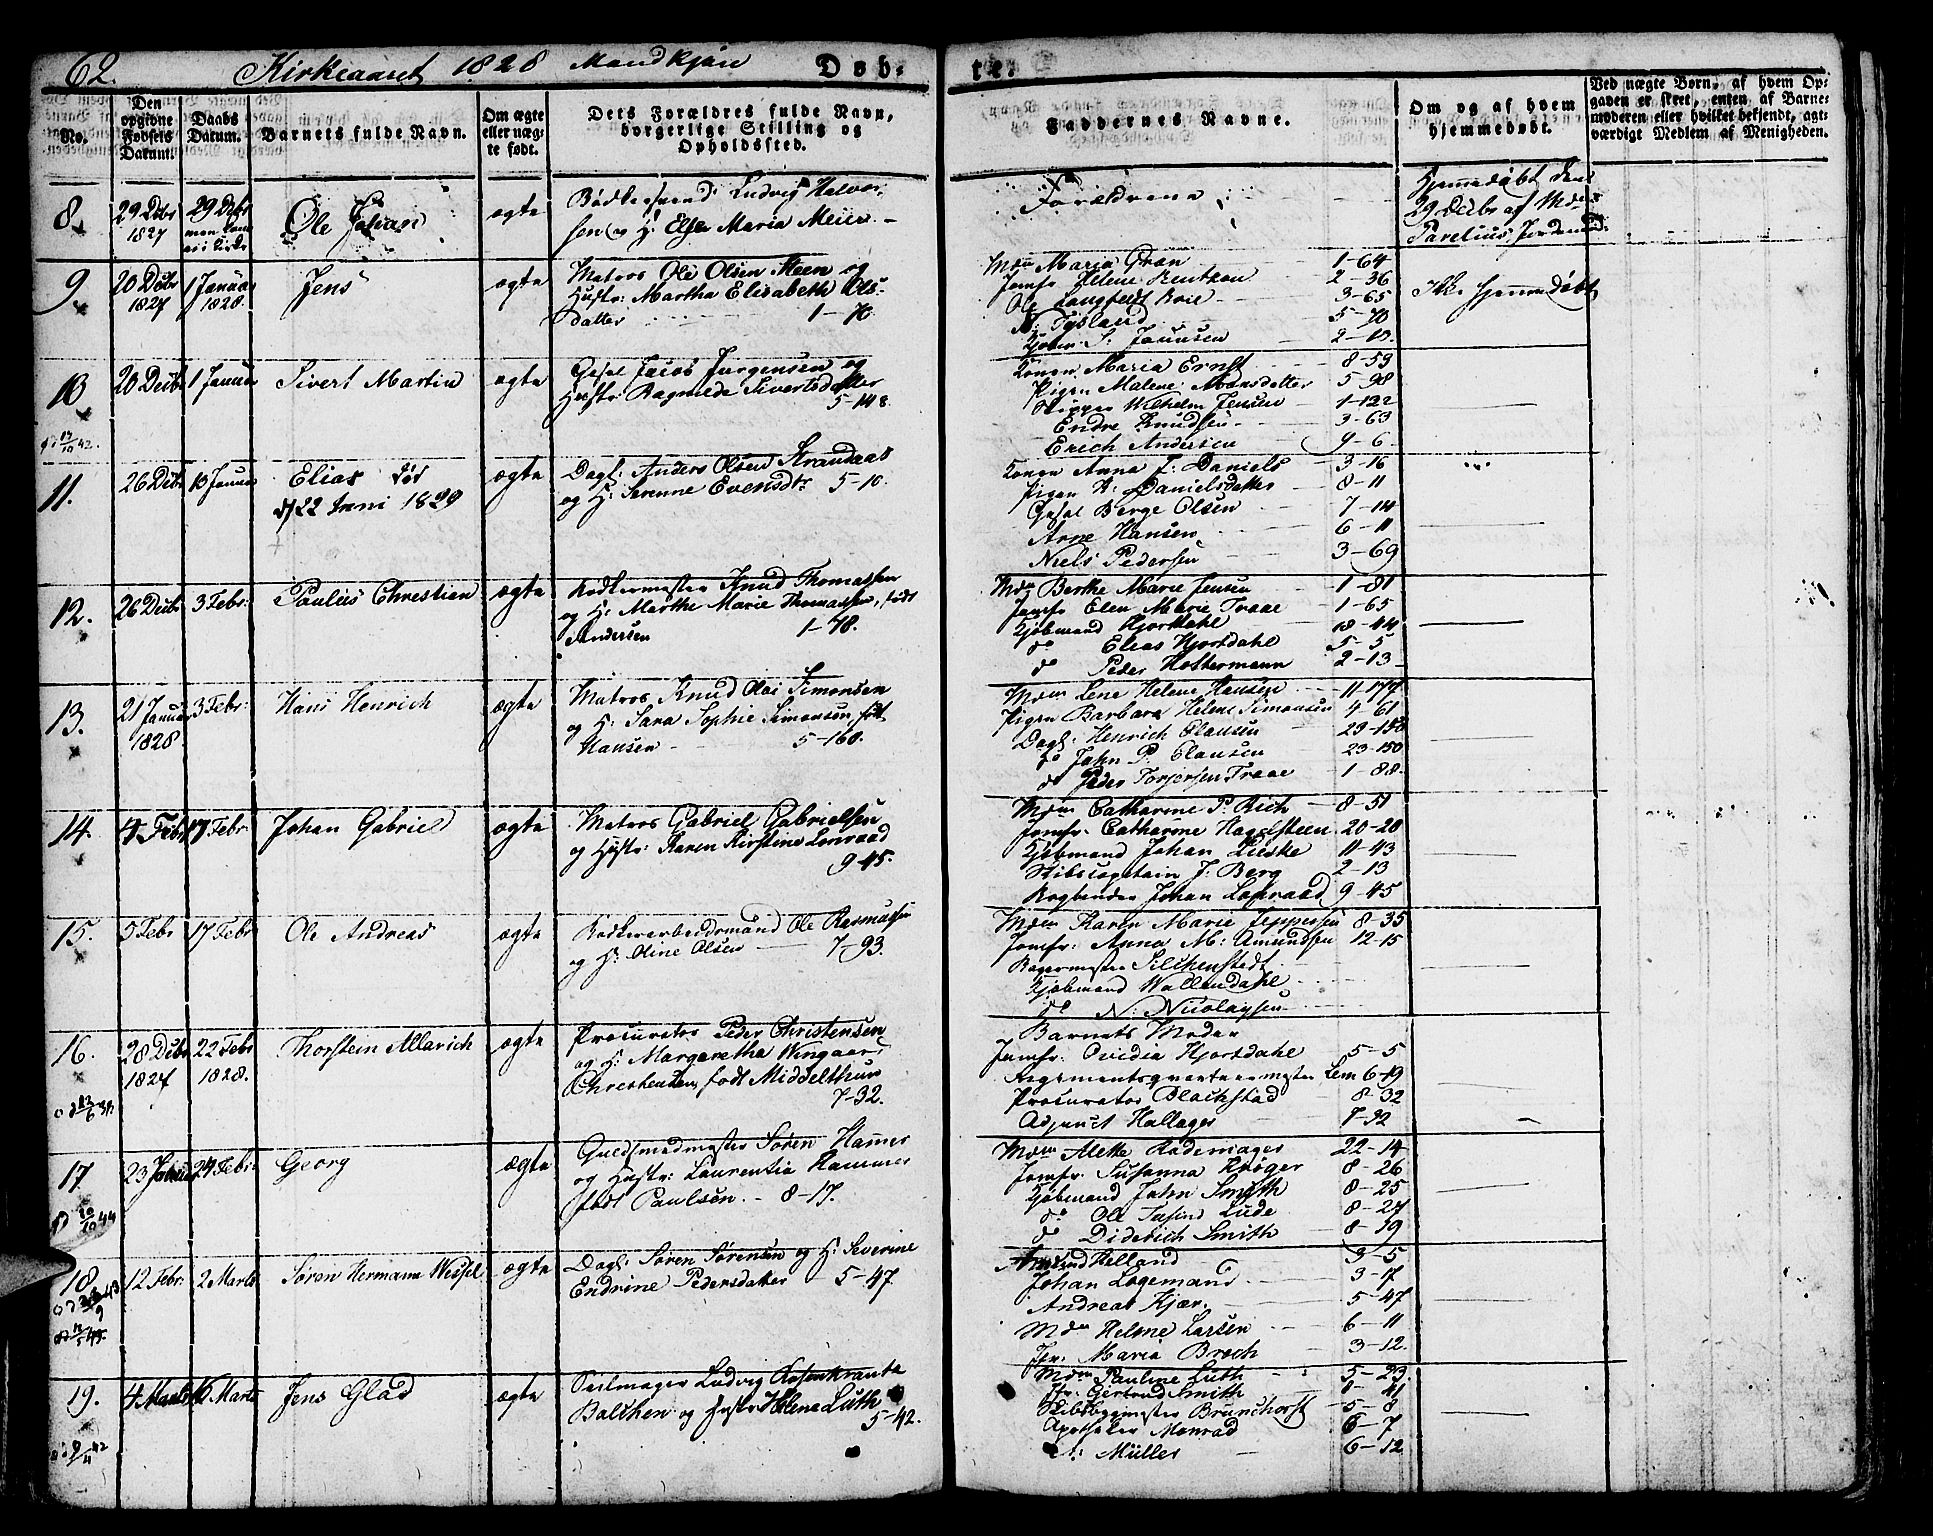 62.
Kirkeaaret 1828 Mandkjøn
Døb-
te.
No.
Den opgivne Fødsels Datum.
Daabs Datum.
Barnets fulde Navn.
Om ægte eller nægte født.
Dets Forældres fulde Navn, borgerlige Stilling og Opholdssted.
Faddernes Navne.
Om og af hvem hjemmedøbt.
Ved nægte Børn, af hvem Opgaven er skeet, enten af Barnemoderen eller hvilket bekjendt, agtværdigt Medlem af Menigheden.
8.
29 Debr 1827
29 Debr
Ole Johan
ægte
Bødkersvend Ludvig Halvor-
sen og H: Else Maria Meier
Forældrene
Hjemmedøbt den
29 Debr af
Parelius
9
20 Debr 1827
1 Januar 1828.
Jens
ægte
Matros Ole Olsen Steen og
Hustr: Martha Elisabeth Ols-
datter 1-70
Mdm Maria Gran 1-64
Jomfr Helene 2-36
Ole Langfeldt Brie 3-65
N: Tysland 5-70
Kjøbm: S: Jannsen 2-10.
Ikke hjemmedøbt
10
20 Debr
1 Januar
Sivert Martin
ægte
Gesel Jacob Jørgensen og
Hustr Ragnilde Sivertsdatter
5-148
Konen Maria Ernst 8-53
Pigen Malene Monsdatter 5-98
Skipper Wilhelm Jensen 1-122
Endre Knudsen 3-63
Erich Andersen 9-6
11.
26 Debr
13 Januar
Elias død
d/22 Juni 1829
ægte
Dagl: Anders Olsen Strandaas
og H: Serenne Evensdtr 5-10.
Konen Anna J: Daniels 3-16
Pigen A: Danielsdatter 8-11
Gesel Berge Olsen 7-114
Arne Hansen 6-11
Niels Pedersen 3-69
12.
26 Debr
3 Febr:
Paulus Christian
ægte
Bødkermester Knud Thomassen
og H: Marthe Marie Thomassen, født
Andersen 1-78.
Mdm Berthe Marie Jensen 1-81
Jomfr Elen Marie Traae 1-65
Kjøbmand Hjortdahl 18-44
do Elias Hjortdahl 5-5
do Peder Holtermann 2-13
13.
21 Januar 1828.
3 Febr:
Hans Henrich
ægte
Matros Knud Olai Simonsen
og H: Sara Sophie Simonsen født
Hansen 5-160.
Mdm Lene Helene Hansen 11-177
Pigen Barbara Helene Simonsen 4-61
Dagl: Henrich Clausen 23-150
do John P. Clausen 23-150
do Peder Torgersen Traae 1-88.
14.
4 Febr
17 Febr
Johan Gabriel
ægte
Matros Gabriel Gabrielsen
og Hustr: Karen Kirstine Lonraad
9-45.
Mdm Catharine P. Rich 8-51
Jomfr. Catharine Hagelsteen 20-28
Kjøbmand Johan Lieske 11-43
Skibscaptain J. Berg 2-13
Bogbinder Johan Lonraad 9-45
15.
5 Febr
17 Febr
Ole Andreas
ægte
Bødkerarbeidsmand Ole Rasmussen
og H: Oline Olsen 7-93.
Mdm Karen Marie Jeppesen 8-35
Jomfr: Anna M: Amundsen 12-15
Bagermester Silchenstedt
Kjøbmand Wallendahl
do N: Nicolaysen
16.
28 Debr 1827
22 Febr 1828.
Thorstein Allarich
ægte
Procurator Peder Christensen
og H: Margaretha Wingaard
Christensen, født Middelthun
7-32.
Barnets Moder
Jomfr: Ovidia Hjortdahle 5-5
Regimentsqvarteermester Lem 6-19
Procurator Blachstad 8-32
Adjunct Hallager 7-32
17
23 Januar
24 Febr:
Georg
ægte
Guldsmedmester Søren Hammer
og Hustr: Laurentia Hammer
født Paulsen. 8-17.
Mdm Alette Rademager 22-14
Jomfr: Susanna Krøger 8-26
Kjøbmand John Smith 8-25
do Ole Lude 8-27
do Diderich Smith 8-19
18
12 Febr:
2 Marts
Søren Hermann Wessel
ægte
Dagl: Søren Sørensen og H: Severine
Endrine Pedersdatter 5-47
Amund Helland 3-5
Johan Logemand 3-17
Andreas Kjær. 5-47
Mdm Helene Larsen 6-11
Jfr: Maria Broch 3-12.
19.
4 Marts
16 Marts
Jens Glad
ægte
Seilmager Ludvig Rosenkrantz
Balchen og Hustr Helene Luth
5-42.
Mdm Pauline Luth 5-23
Jfr: Gertrud Smith 41
Skibsbygmester Brunchorst 5-8
Apotheker Monrad 6-7
Müller 6-12